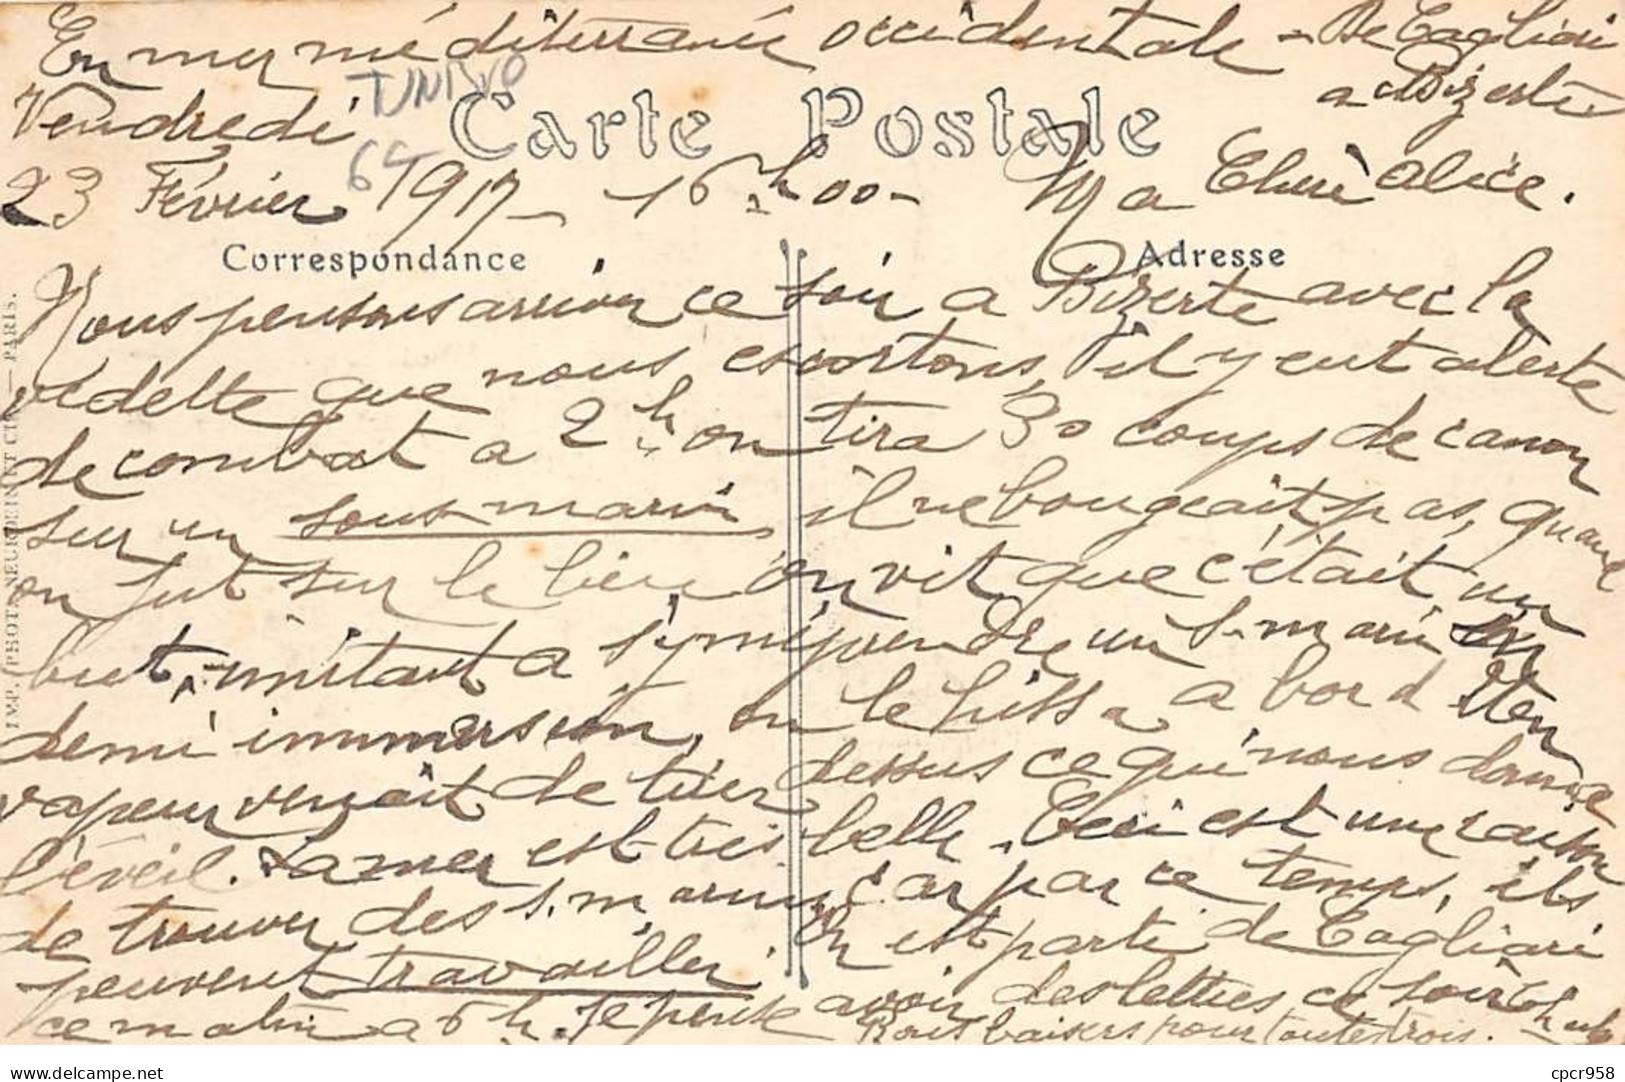 En mer méditerranée occidentale - De Cagliari
a Bizerte
Vendredi
TUNISIE
Carte Postale
23 Février 1917 - 16h00 - Ma Chère Alice.
Correspondance
Adresse
Nous pensons arriver ce soir a Bizerte avec la
vedette que nous escortons, il y eut alerte
de combat a 2h on tira 30 coups de canon
sur un sous-marin, il ne bougeait pas, quand
on fut sur le lieu on vit que c'était un
but, imitant a s'y méprendre un s.marin en
demi immersion, on le hissa a bord
vapeur venait de tirer dessus ce qui nous donna
l'éveil. La mer est très belle. Ceci est une raison
de trouver des s.marins, car par ce temps, ils
peuvent travailler. On est parti de Cagliari
ce matin a 6h. Je pense avoir des lettres ce soir
Bons baisers pour toutes trois.
IMP. PHOT. NEURDEIN ET CIE — PARIS.
delcampe.net
cpcr958